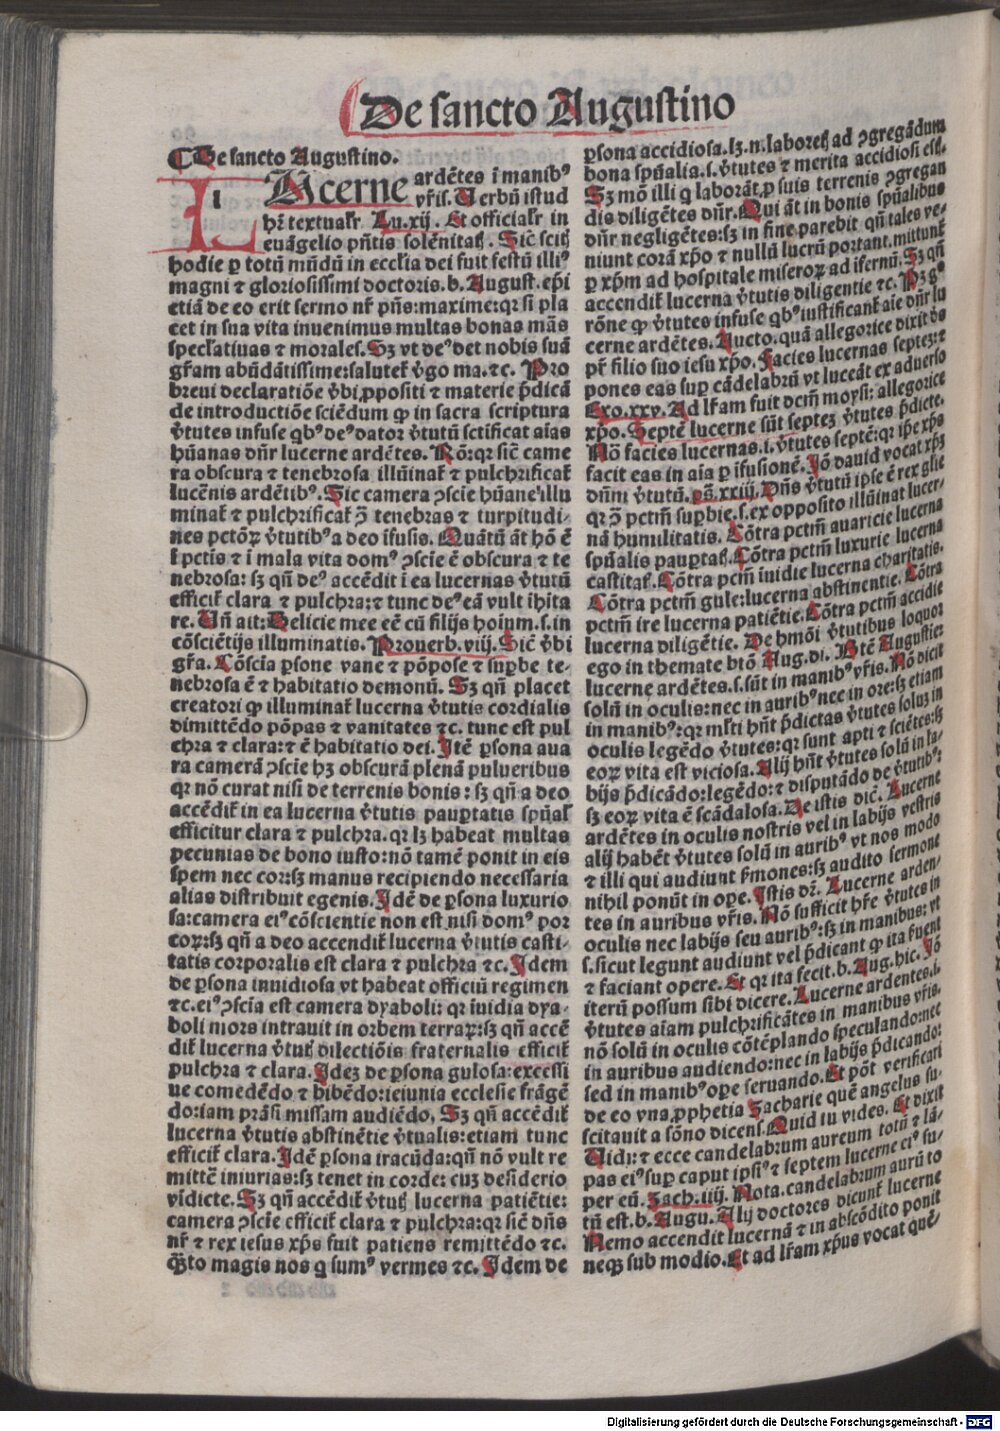 De sancto Augustino
¶ De sancto Augustino.
LUcerne ardētes ī manibꝰ
vr̄is. Uerbū istud
hr̄ textualr̄ Lu.xij. Et officialr̄ in
euāgelio pn̄tis solēnitatꝭ. Sic̄ scitꝭ
hodie ꝑ totū mūdū in eccl̄ia dei fuit festū illiꝰ
magni ⁊ gloriosissimi doctoris .b. August. ep̄i
etiā de eo erit sermo nr̄ pn̄s: maxime: qꝛ si pla
cet in sua vita inuenimus multas bonas mās
specl̄atiuas ⁊ morales. Sꝫ vt deꝰ det nobis suā
gr̄am abūdātissime: salutet̄ v̄go ma. ⁊c. Pro
breui declaratiōe v̄bi ꝓpositi ⁊ materie p̄dicā
de introductiōe sciēdum ꝙ in sacra scriptura
v̄tutes infuse qbꝰ deꝰ dator v̄tutū sctificat aīas
hūanas dn̄r lucerne ardētes. Rō: qꝛ sic̄ came
ra obscura ⁊ tenebrosa illūinat̄ ⁊ pulchrificat̄
lucēnis ardētibꝰ. Sic camera ꝯscie hūane illu
minat̄ ⁊ pulchrificat̄ ꝯ̄ tenebras ⁊ turpitudi-
nes pctōꝝ v̄tutibꝰ a deo īfusis. Quātū āt hō ē
ī pctis ⁊ ī mala vita domꝰ ꝯscie ē obscura ⁊ te
nebrosa: sꝫ qn̄ deꝰ accēdit ī ea lucernas v̄tutū
efficit̄ clara ⁊ pulchra: ⁊ tunc deꝰ eā vult īhita
re. Un̄ ait: Delicie mee eē cū filijs hoium. s. in
cōsciētijs illuminatis. Prouerb. viij. Sic̄ v̄bi
gr̄a. Cōscia ꝑsone vane ⁊ pōpose ⁊ suꝑbe te-
nebrosa ē ⁊ habitatio demonū. Sꝫ qn̄ placet
creatori ꝙ illuminat̄ lucerna v̄tutis cordialis
dimittēdo pōpas ⁊ vanitates ⁊c. tunc est pul
chra ⁊ clara: ⁊ ē habitatio dei. Itē ꝑsona aua
ra camerā ꝯscie hꝫ obscurā plenā pulueribus
qꝛ nō curat nisi de terrenis bonis: sꝫ qn̄ a deo
accēdit̄ in ea lucerna v̄tutis pauꝑtatis spūal̄
efficitur clara ⁊ pulchra. qꝛ lꝫ habeat multas
pecunias de bono iusto: nō tamē ponit in eis
spem nec cor: sꝫ manus recipiendo necessaria
alias distribuit egenis. Idē de ꝑsona luxurio
sa: camera eiꝰ cōscientie non est nisi domꝰ por
coꝝ: sꝫ qn̄ a deo accendit̄ lucerna v̄tutis casti-
tatis corporalis est clara ⁊ pulchra ⁊c. Idem
de ꝑsona inuidiosa vt habeat officiū regimen
⁊c. eiꝰ ꝯscia est camera dyaboli: qꝛ īuidia dya-
boli mors intrauit in orbem terraꝝ: sꝫ qn̄ accē
dit̄ lucerna v̄tutꝭ dilectiōis fraternalis efficit̄
pulchra ⁊ clara. Idez de ꝑsona gulosa: excessi
ue comedēdo ⁊ bibēdo: ieiunia ecclesie frāgē
do: iam prāsi missam audiēdo. Sꝫ qn̄ accēdit̄
lucerna v̄tutis abstinētie v̄tualis: etiam tunc
efficit̄ clara. Idē ꝑsona iracūda: qn̄ nō vult re
mittē iniurias: sꝫ tenet in corde: cuz desiderio
vīdicte. Sꝫ qn̄ accēdit̄ v̄tutꝭ lucerna patiētie:
camera ꝯscie efficit̄ clara ⁊ pulchra: qꝛ sic̄ dn̄s
nr̄ ⁊ rex iesus xp̄s fuit patiens remittēdo ⁊c.
Q̄to magis nos q sumꝰ vermes ⁊c. Idem de
ꝑsona accidiosa. lꝫ .n. laboretꝭ ad ꝯgregādum
bona spūalia. s. v̄tutes ⁊ merita accidiosi est.
Sꝫ mō illi q laborāt ꝓ suis terrenis ꝯgregan
dis diligētes dn̄r. Qui āt in bonis spūalibus
dn̄r negligētes: sꝫ in fine parebit qn̄ tales ve-
niunt corā xp̄o ⁊ nullū lucrū portant. mittunt̄
ꝑ xp̄m ad hospitale miseroꝝ ad īfernū. Sꝫ qn̄
accendit̄ lucerna v̄tutis diligentie ⁊c. Pꝫ gͦ
rōne ꝙ v̄tutes infuse qbꝰ iustificant̄ aīe dn̄r lu
cerne ardētes. Aucto. quā allegorice dixit deꝰ
pr̄ filio suo iesu xp̄o. Facies lucernas septez: ⁊
pones eas suꝑ cādelabrū vt luceāt ex aduerso
Exo.xxv. Ad lr̄am fuit dcm̄ moysi: allegorice
xp̄o. Septē lucerne sūt septez v̄tutes p̄dicte.
Nō facies lucernas .i. v̄tutes septē: qꝛ ip̄e xp̄s
facit eas in aīa ꝑ īfusionē. Iō dauid vocat xp̄z
dn̄m v̄tutū. pš.xxiij. Dn̄s v̄tutū ip̄e ē rex glīe
qꝛ ꝯ̄ pctm̄ suꝑbie. s. ex opposito illūinat lucer-
nā humilitatis. Cōtra pctm̄ auaricie lucerna
spūalis pauꝑtatꝭ. Cōtra pctm̄ luxurie lucerna
castitatꝭ. Cōtra pcm̄ īuidie lucerna charitatis.
Cōtra pctm̄ gule: lucerna abstinentie. Cōtra
pctm̄ ire lucerna patiētie. Cōtra pctm̄ accidie
lucerna diligētie. De hmōi v̄tutibus loquor
ego in themate btō Aug. di. Btē Augustine
lucerne ardētes. s. sūt in manibꝰ vr̄is. Nō dicit
solū in oculis: nec in auribꝰ nec in ore: sꝫ etiam
in manibꝰ: qꝛ ml̄ti hn̄t p̄dictas v̄tutes soluz in
oculis legēdo v̄tutes: qꝛ sunt apti ⁊ sciētes: sꝫ
eoꝝ vita est viciosa. Alij hn̄t v̄tutes solū in la-
bijs p̄dicādo: legēdo: ⁊ disputādo de v̄tutibꝰ:
sꝫ eoꝝ vita ē scādalosa. De istis dic̄. Lucerne
ardētes in oculis nostris vel in labijs vestris
alij habēt v̄tutes solū in auribꝰ vt nos modo
⁊ illi qui audiunt s̄mones: sꝫ audito sermone
nihil ponūt in oꝑe. Istis dr̄. Lucerne arden-
tes in auribus vr̄is. Nō sufficit hr̄e v̄tutes in
oculis nec labijs seu auribꝰ: sꝫ in manibus: vt
.s. sicut legunt audiunt vel p̄dicant ꝙ ita s̄uent
⁊ faciant opere. Et qꝛ ita fecit .b. Aug. hic. Iō
iterū possum sibi dicere. Lucerne ardentes .i.
v̄tutes aīam pulchrificātes in manibus vr̄is.
nō solū in oculis cōtēplando speculando: nec
in auribus audiendo: nec in labijs p̄dicando:
sed in manibꝰ oꝑe seruando. Et pōt verificari
de eo vna ꝓphetia Zacharie quē angelus su-
scitauit a sōno dicens. Quid tu vides. Et dixit
Uidi: ⁊ ecce candelabrum aureum totū ⁊ lā-
pas eiꝰ suꝑ caput ipsiꝰ ⁊ septem lucerne eiꝰ su-
per eū. Zach.iiij. Nota. candelabrum aurū to
tū est .b. Augu. Alij doctores dicunt̄ lucerne
Nemo accendit lucernā ⁊ in abscōdito ponit
neqꝫ sub modio. Et ad lr̄am xp̄us vocat quē-
Digitalisierung gefördert durch die Deutsche Forschungsgemeinschaft - DFG